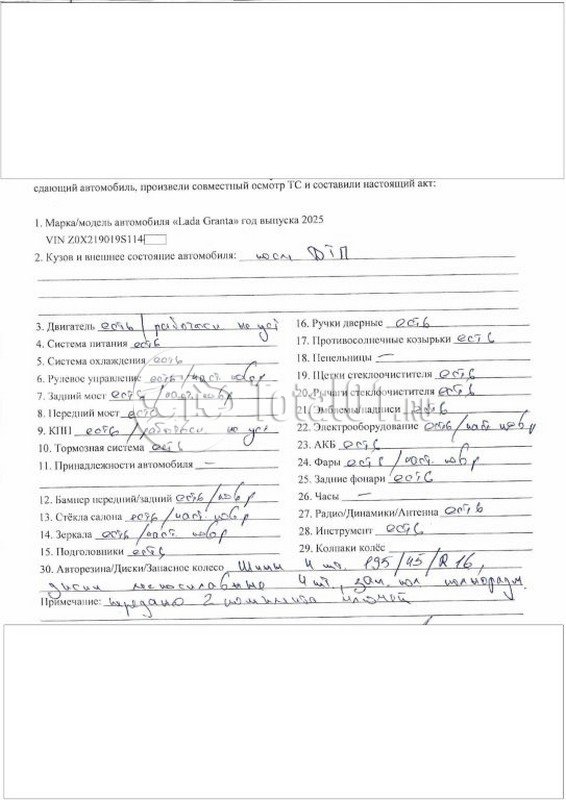 сдающий автомобиль, произвели совместный осмотр ТС и составили настоящий акт:
1. Марка/модель автомобиля «Lada Granta» год выпуска 2025
VIN Z0X219019S114
2. Кузов и внешнее состояние автомобиля: посл ДТП
3. Двигатель есть / работосп не уст
4. Система питания есть
5. Система охлаждения есть
6. Рулевое управление есть/част. повр
7. Задний мост есть/част. повр
8. Передний мост есть
9. КПП есть/работосп не уст
10. Тормозная система есть
11. Принадлежности автомобиля —
12. Бампер передний/задний есть/повр
13. Стёкла салона есть/част. повр
14. Зеркала есть/част. повр
15. Подголовники есть
16. Ручки дверные есть
17. Противосолнечные козырьки есть
18. Пепельницы —
19. Щетки стеклоочистителя есть
20. Рычаги стеклоочистителя есть
21. Эмблемы/надписи есть
22. Электрооборудование есть/част. повр
23. АКБ есть
24. Фары есть/част. повр
25. Задние фонари есть
26. Часы —
27. Радио/Динамики/Антенна есть
28. Инструмент есть
29. Колпаки колёс
30. Авторезина/Диски/Запасное колесо Шины 4 шт. 195/45/R16,
диски легкосплавные 4 шт, зап. кол полноразм.
Примечание: передано 2 комплекта ключей
Total01.ru